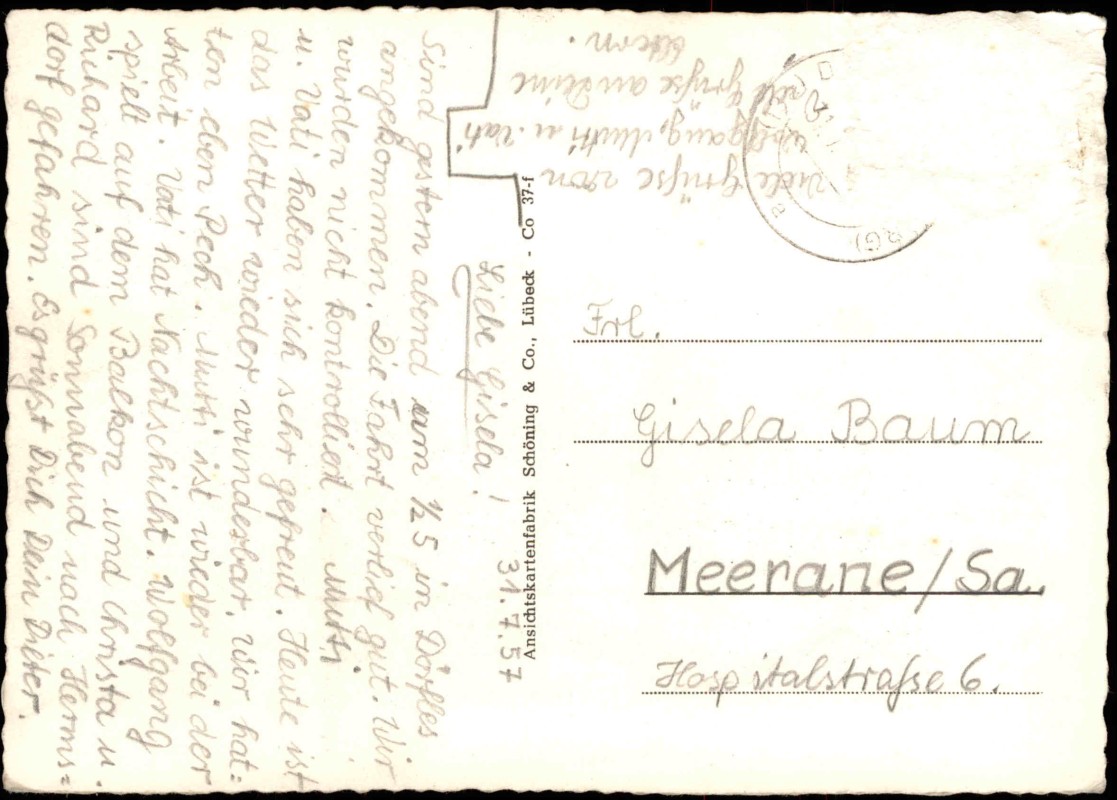 31.7.57
Liebe Gisela!
Sind gestern abend um ½ 5 in Dörfles
angekommen. Die Fahrt verlief gut. Wir
wurden nicht kontrolliert. Mutti
u. Vati haben sich sehr gefreut. Heute ist
das Wetter wieder wunderbar, wir hat=
ten eben Pech. Mutti ist wieder bei der
Arbeit. Vati hat Nachtschicht. Wolfgang
spielt auf dem Balkon und Christa u.
Richard sind Sonnabend nach Herms=
dorf gefahren. Es grüßt Dich Dein Dieter.
Viele Grüße von
Wolfgang, Mutti u. Vati
Viele Grüße an Deine
Eltern.
Ansichtskartenfabrik Schöning & Co., Lübeck - Co 37-f
Frl.
Gisela Baum
Meerane/Sa.
Hospitalstraße 6.